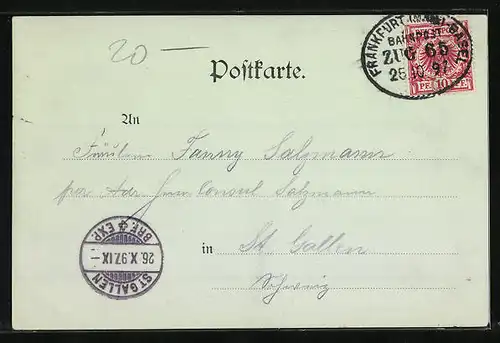 20 —
FRANKFURT (MAIN) BASEL
BAHNPOST
ZUG 65
25 10 97
PF. 10 PF.
Postkarte.
An
Fräulein Fanny Salzmann
per Adr Herrn Consul Salzmann
in St Gallen
Schweiz
ST GALLEN
26.X.97.IX–
BRF. EXP.